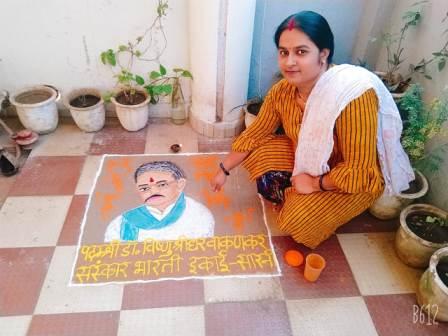 पद्मश्री डॉ॰ विष्णु श्रीधर वाकणकर
संस्कार भारती इकाई-
B612